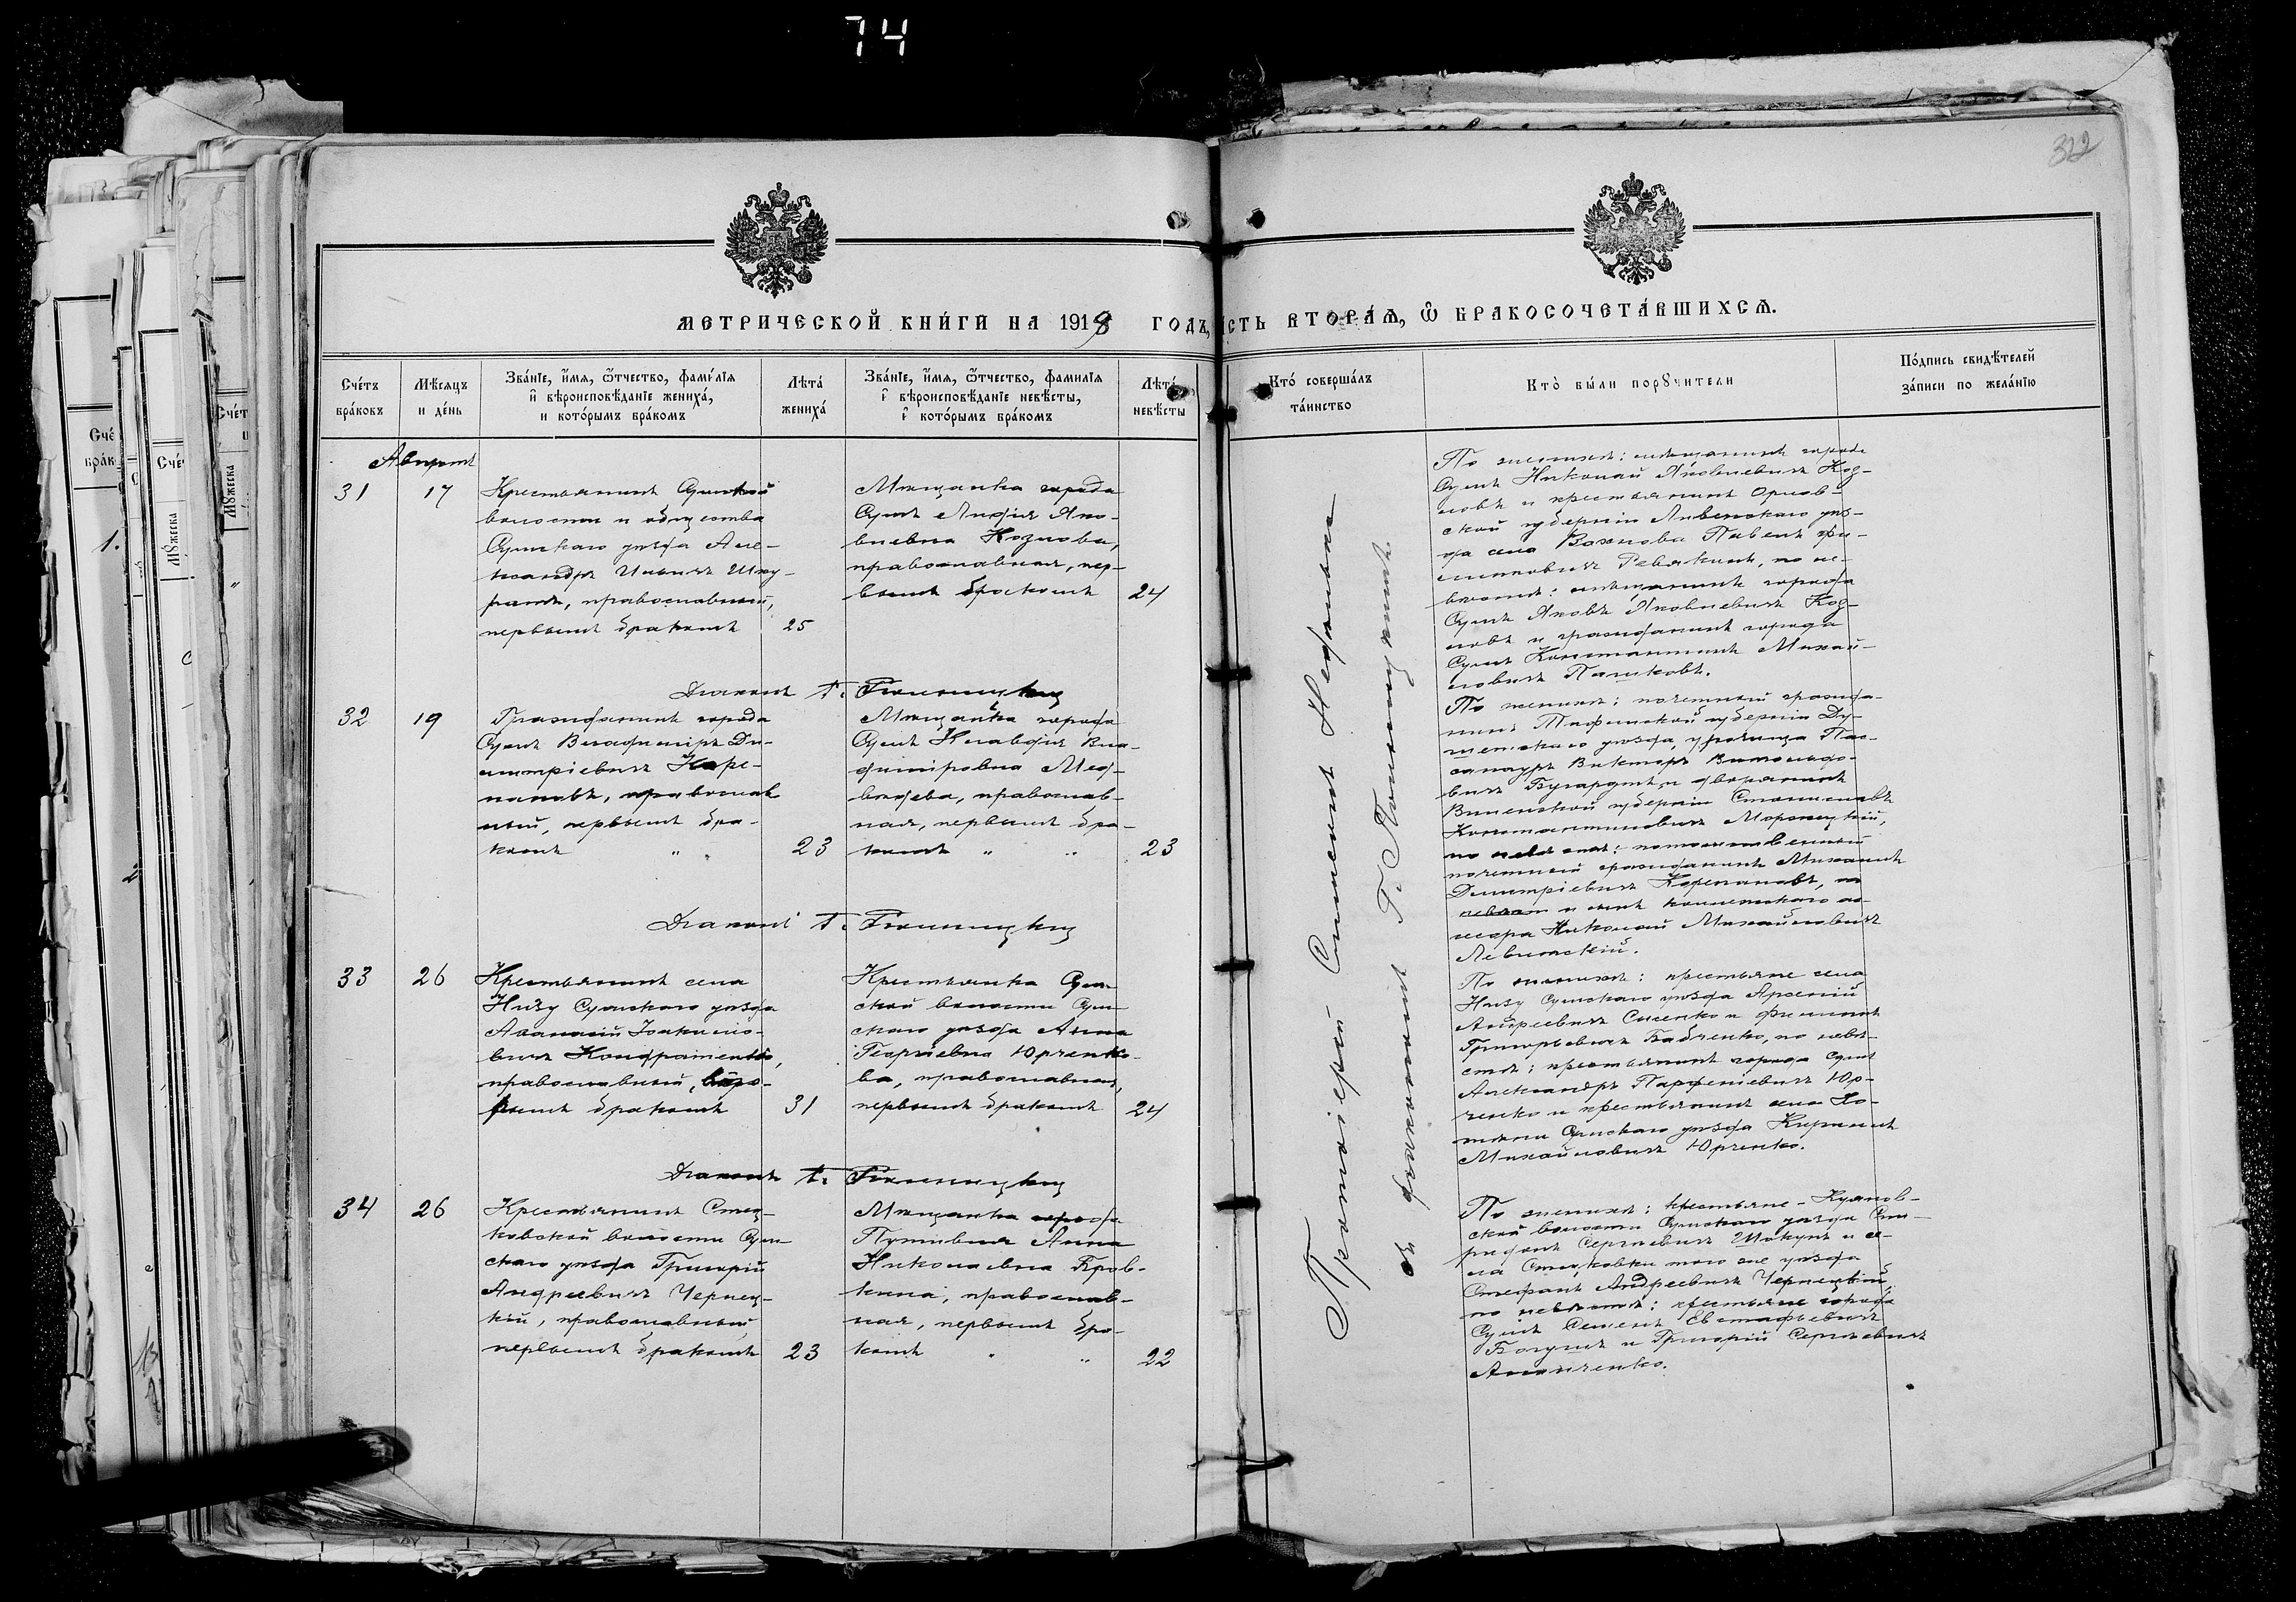 74
322
МЕТРИЧЕСКОЙ КНИ́ГИ НА 1918 ГОДЪ,
СТЬ ВТОРА́Ѧ, Ѽ БРАКОСОЧЕТА́ВШИХСѦ.
Сче́тъ
бра́ковъ
Мѣ́сяцъ
и де́нь
Зва́нїе, и҆́мя, ѻ҆́тчество, фами́лїя
и҆ вѣроисповѣ́данїе жениха́,
и кото́рымъ бра́комъ
Лѣта́
жениха́
Зва́нїе, и҆́мя, ѻ҆́тчество, фами́лїя
и҆ вѣроисповѣ́данїе невѣ́сты,
и҆ кото́рымъ бра́комъ
Лѣта́
невѣ́сты
Кто́ соверша́лъ
та́инство
Кто̀ бы́ли порꙋчители
По́дпись свидѣ́телей
за́писи по жела́нїю
Августъ
31
17
Крестьянинъ Сумской
волости и общества
Сумскаго уѣзда Але-
ксандръ Ильичъ Шку-
ратъ, православный,
первымъ бракомъ
25
Мѣщанка города
Сумъ Лидія Яко-
влевна Козлова,
православная, пер-
вымъ бракомъ
24
По женихѣ: мѣщанинъ города
Сумъ Николай Яковлевичъ Коз-
ловъ и крестьянинъ Орлов-
ской губерніи Ливенскаго уѣз-
да села Вахнова Павелъ Фи-
липповичъ Ревякинъ, по не-
вѣстѣ: мѣщанинъ города
Сумъ Яковъ Яковлевичъ Коз-
ловъ и гражданинъ города
Сумъ Константинъ Михай-
ловичъ Пашковъ.
Діаконъ Г.
32
19
Гражданинъ города
Сумъ Владиміръ Ди-
митріевичъ Каре-
пановъ, православ
ный, первымъ бра-
комъ " "
23
Мѣщанка города
Сумъ Клавдія Вла-
диміровна Мед-
вѣдева, православ-
ная, первымъ бра-
комъ " "
23
По женихѣ: почетный гражда-
нинъ Тифлисской губерніи Ду-
шетскаго уѣзда, урочища Пас-
санауръ Викторъ
и дворянинъ
Виленской губерніи Станиславъ
Константиновичъ
по невѣстѣ: потомственный
почетный гражданинъ Михаилъ
Димитріевичъ Карепановъ,
и сынъ коллежскаго ас-
сесора Николай Михайловичъ
Левитскій.
Діаконъ Г.
33
26
Крестьянинъ села
Низу Сумскаго уѣзда
Аѳанасій Іоакимо-
вичъ Кондратенко,
православный, вто-
рымъ бракомъ
31
Крестьянка Сум-
ской волости Сум
скаго уѣзда Анна
Георгіевна Юрченко-
ва, православная,
первымъ бракомъ
24
По женихѣ: крестьяне села
Низу Сумскаго уѣзда Арсеній
Андреевичъ Сисенко и Филиппъ
Григорьевичъ Бабченко, по невѣ-
стѣ: крестьянинъ города Сумъ
Александръ Парѳеніевичъ Юр-
ченко и крестьянинъ села Хо-
тѣни Сумскаго уѣзда Кириллъ
Михайловичъ Юрченко.
Діаконъ Г.
34
26
Крестьянинъ Стец-
ковской волости Сум
скаго уѣзда Григорій
Андреевичъ Чернец-
кій, православный,
первымъ бракомъ
23
Мѣщанка города
Путивля Анна
Николаевна Бров-
кина, православ-
ная, первымъ бра-
комъ " "
22
По женихѣ: крестьяне - Куянов-
ской волости Сумскаго уѣзда Спи-
ридонъ Сергѣевичъ Шокунъ и се-
ла Стецковки того же уѣзда
Стефанъ Андреевичъ Чернецкій,
по невѣстѣ: крестьяне города
Сумъ Семенъ Евстафьевичъ
Богушъ и Григорій Сергѣевичъ

Протоіерей Симеонъ
съ діакономъ Г.